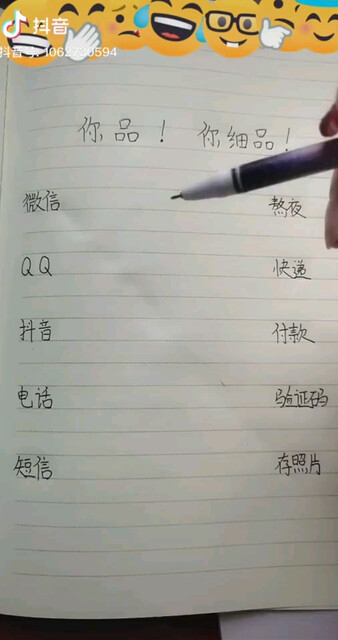 抖音
抖音号:1062730594
你品！ 你细品！
微信 熬夜
QQ 快递
抖音 付款
电话 验证码
短信 存照片